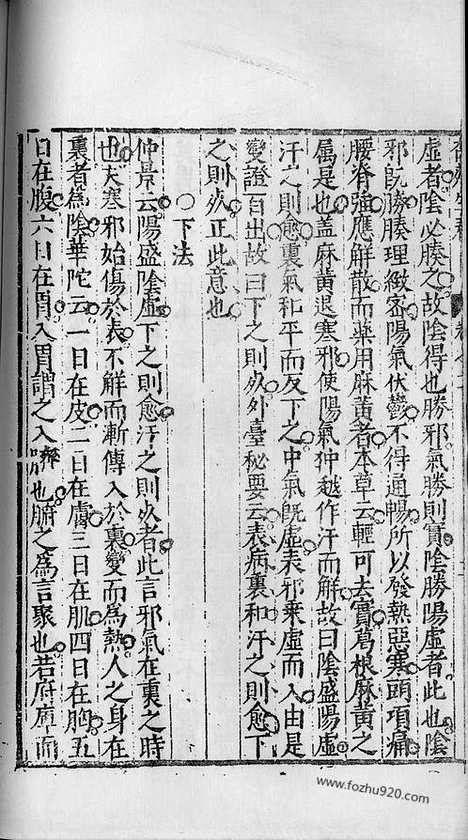 虛者陰必腠之故陰得也勝邪氣勝則實陰勝陽虛者此也陰
邪既勝腠理緻密陽氣伏鬱不得通暢所以發熱惡寒頭項痛
腰脊強應解散而藥用麻黃者本草云輕可去實葛根麻黃之
属是也盖麻黃退寒邪使陽氣冲越作汗而解故曰陰盛陽虛
汗之則愈裏氣和平而反下之中氣既虛表邪乗虛而入由是
變證百出故曰下之則死外臺秘要云表病裏和汗之則愈下
之則死正此意也
○下法
仲景云陽盛陰虛下之則愈汗之則死者此言邪氣在裏之時
也夫寒邪始傷於表不解而漸傳入於裏變而為熱人之身在
裏者為陰華陀云一日在皮二日在膚三日在肌四日在胸五
日在腹六日在胃入胃謂之入腑也腑之為言聚也若府庫而
www.fozhu920.com